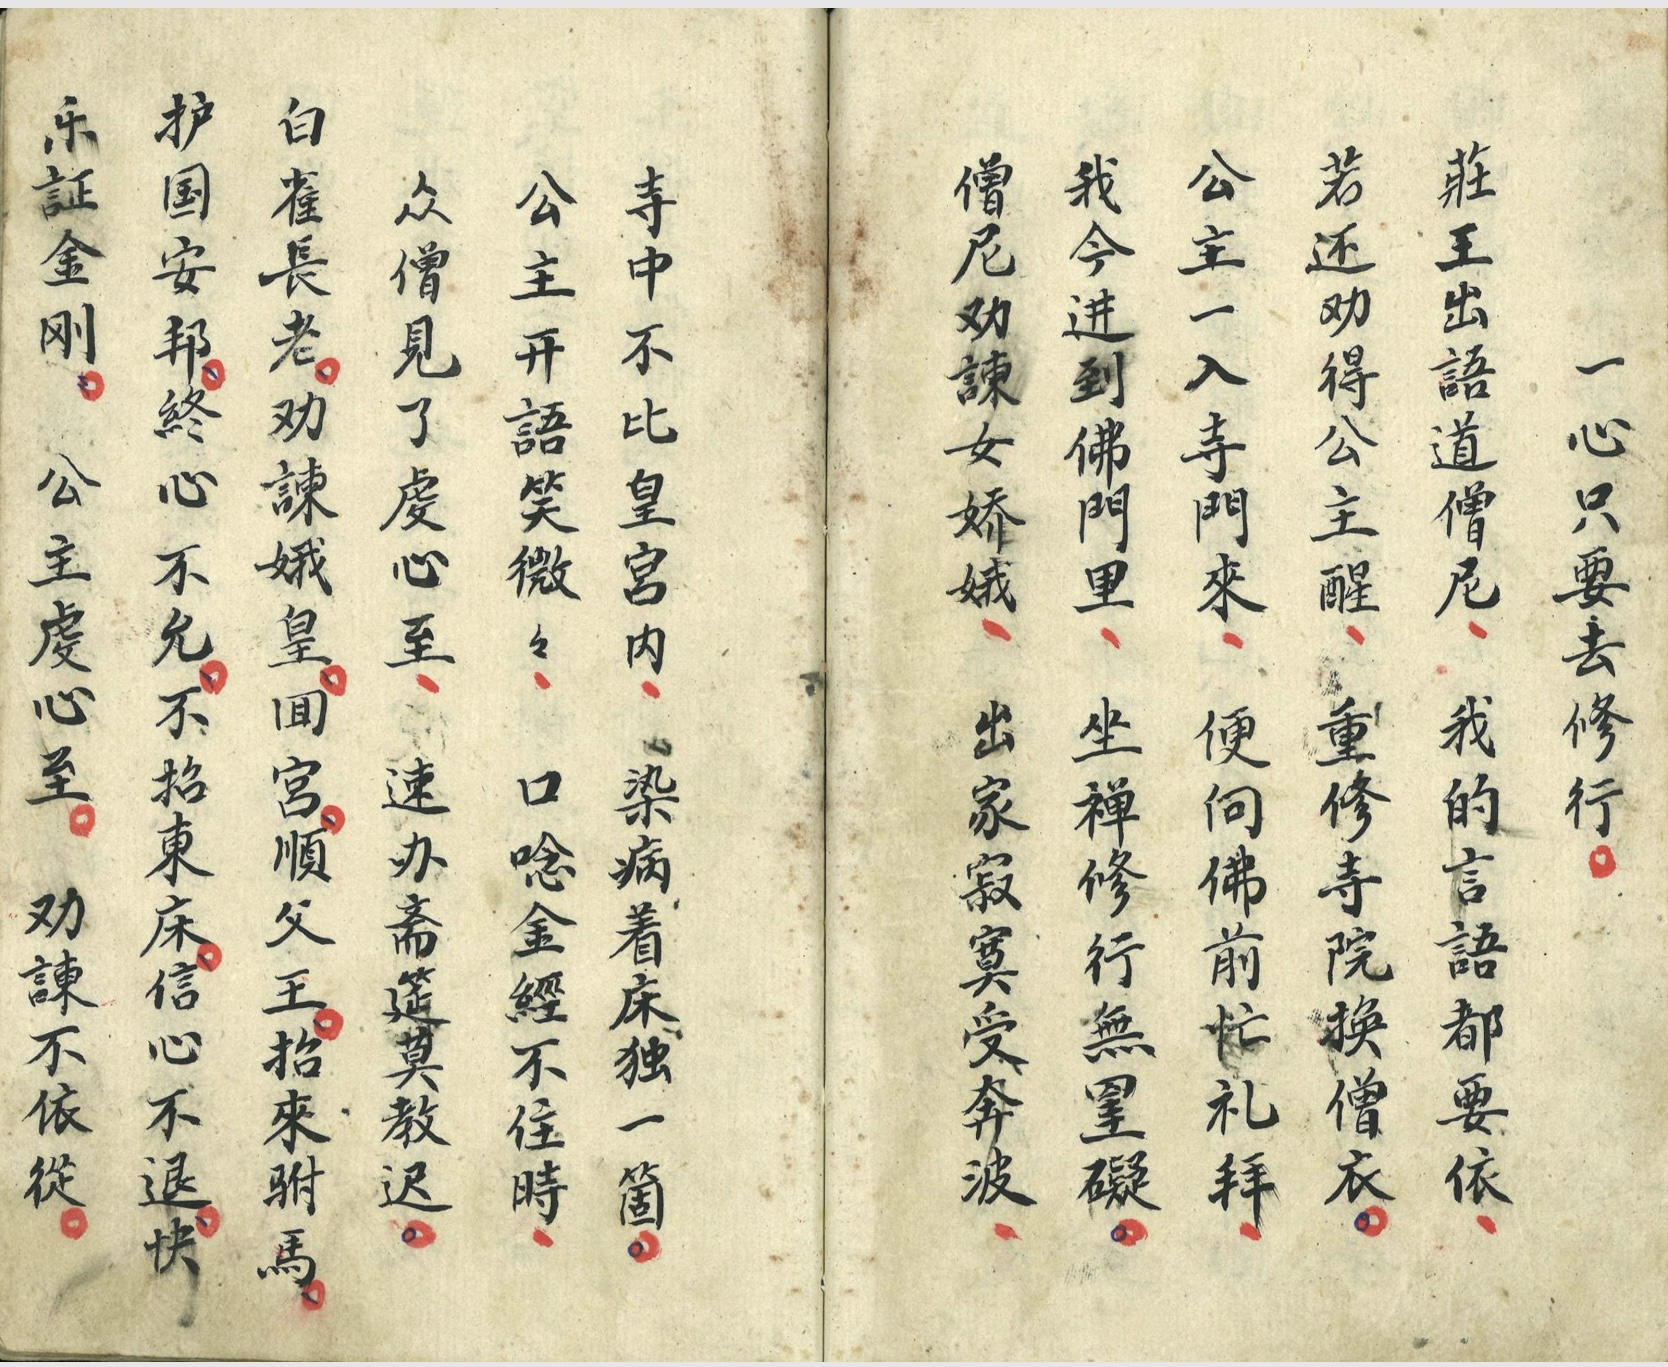 一心只要去修行。
莊王出語道僧尼、我的言語都要依、
若还劝得公主醒、重修寺院换僧衣。
公主一入寺門來、便问佛前忙礼拜、
我今进到佛門里、坐禅修行無罣礙。
僧尼劝諫女娇娥、出家寂寞受奔波、
寺中不比皇宫内、染病着床独一箇。
公主开語笑微々、口唸金經不住時、
众僧見了虔心至、速办斋筵莫教迟。
白雀長老。劝諫娥皇。囬宫。順父王。招來駙馬。
护国安邦。終心不允。不招東床。信心不退。快
乐証金刚。公主虔心至。劝諫不依從。